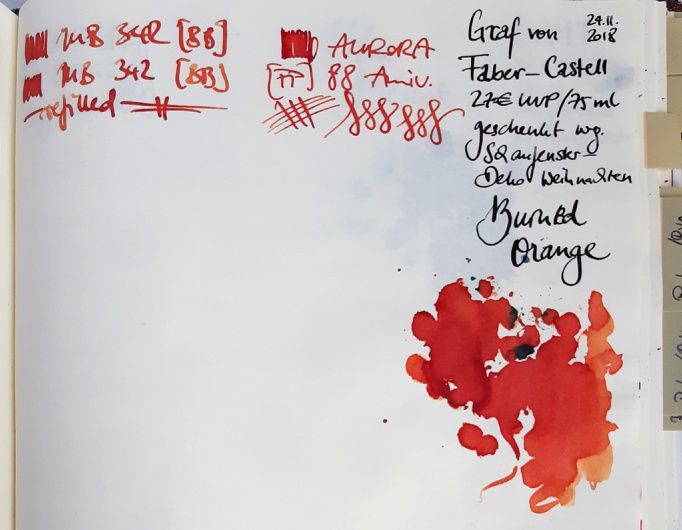 MB 342 [BB]
MB 342 [BB]
refilled
AURORA
[FF] 88 Aniv.
Graf von
24.11.
2018
Faber-Castell
27€ UVP/75 ml
geschenkt wg.
Schaufenster-
Deko Weihnachten
Burned
Orange